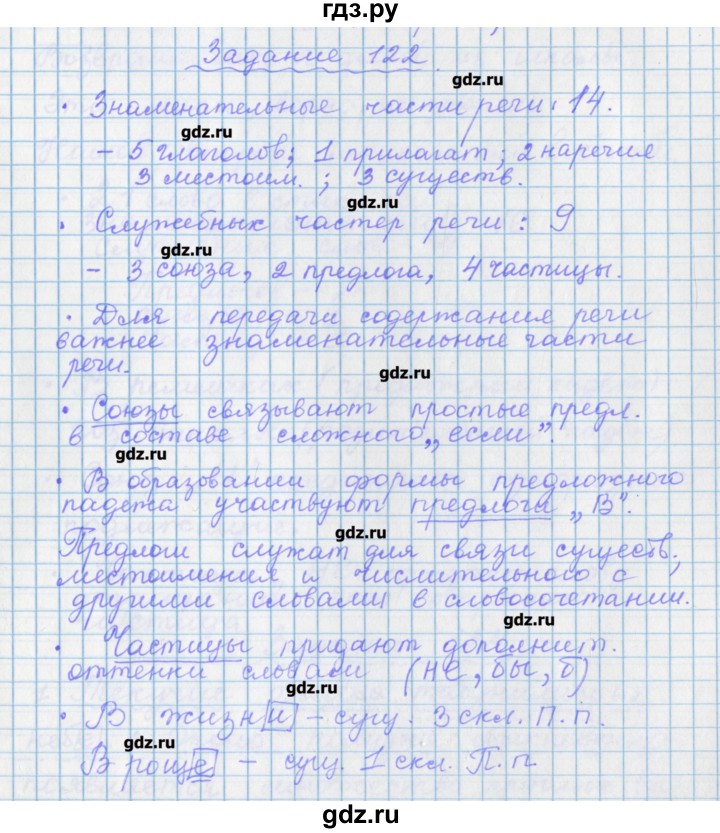 гдз.ру
Задание 122
gdz.ru
• Знаменательные части речи: 14.
gdz.ru
– 5 глаголов; 1 прилагат; 2 наречия
3 местоим. ; 3 существ.
gdz.ru
• Служебных частер речи : 9
gdz.ru
– 3 союза, 2 предлога, 4 частицы.
• Для передачи содержание речи
важнее знаменательные части
речи.
gdz.ru
• Союзы связывают простые предл.
в составе сложного „если”.
gdz.ru
• В образовании формы предложного
падежа участвуют предлоги „В”.
gdz.ru
Предлоги служат для связи существ,
местоимения и числительного с
другими словами в словосочетании.
gdz.ru
• Частицы придают дополнит.
оттенки словам (не, бы, б)
gdz.ru
• В жизни – сущ. 3 скл. П. п.
gdz.ru
В роще – сущ. 1 скл. П. п
gdz.ru